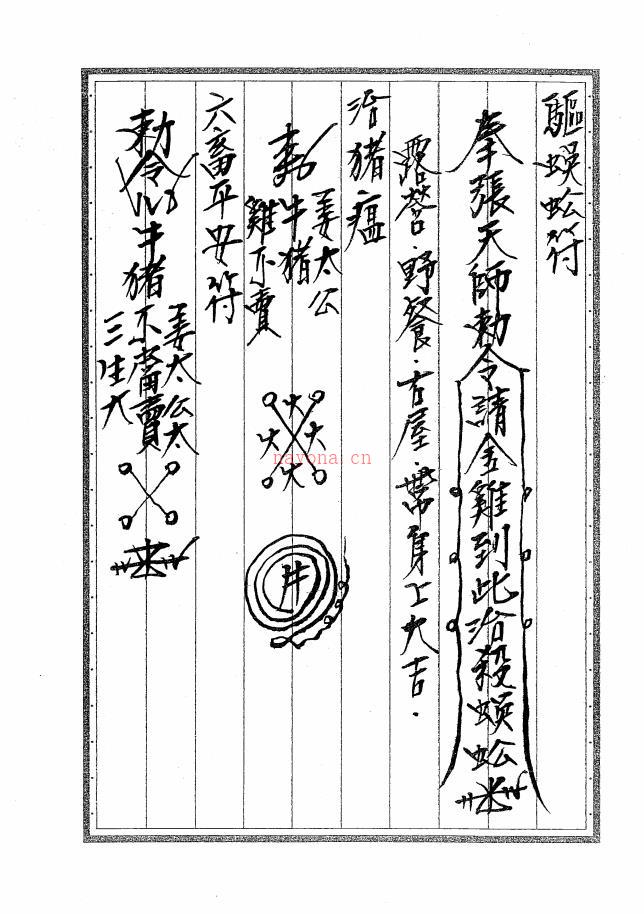 驅蜈蚣符
奉張天師勅令請金雞到此治殺蜈蚣
露營·野餐·古屋·帶身上大吉·
治豬瘟
姜太公
牛豬
雞不賣
井
六畜平安符
勅令
牛豬不
賣
姜太公
三生
nayona.cn